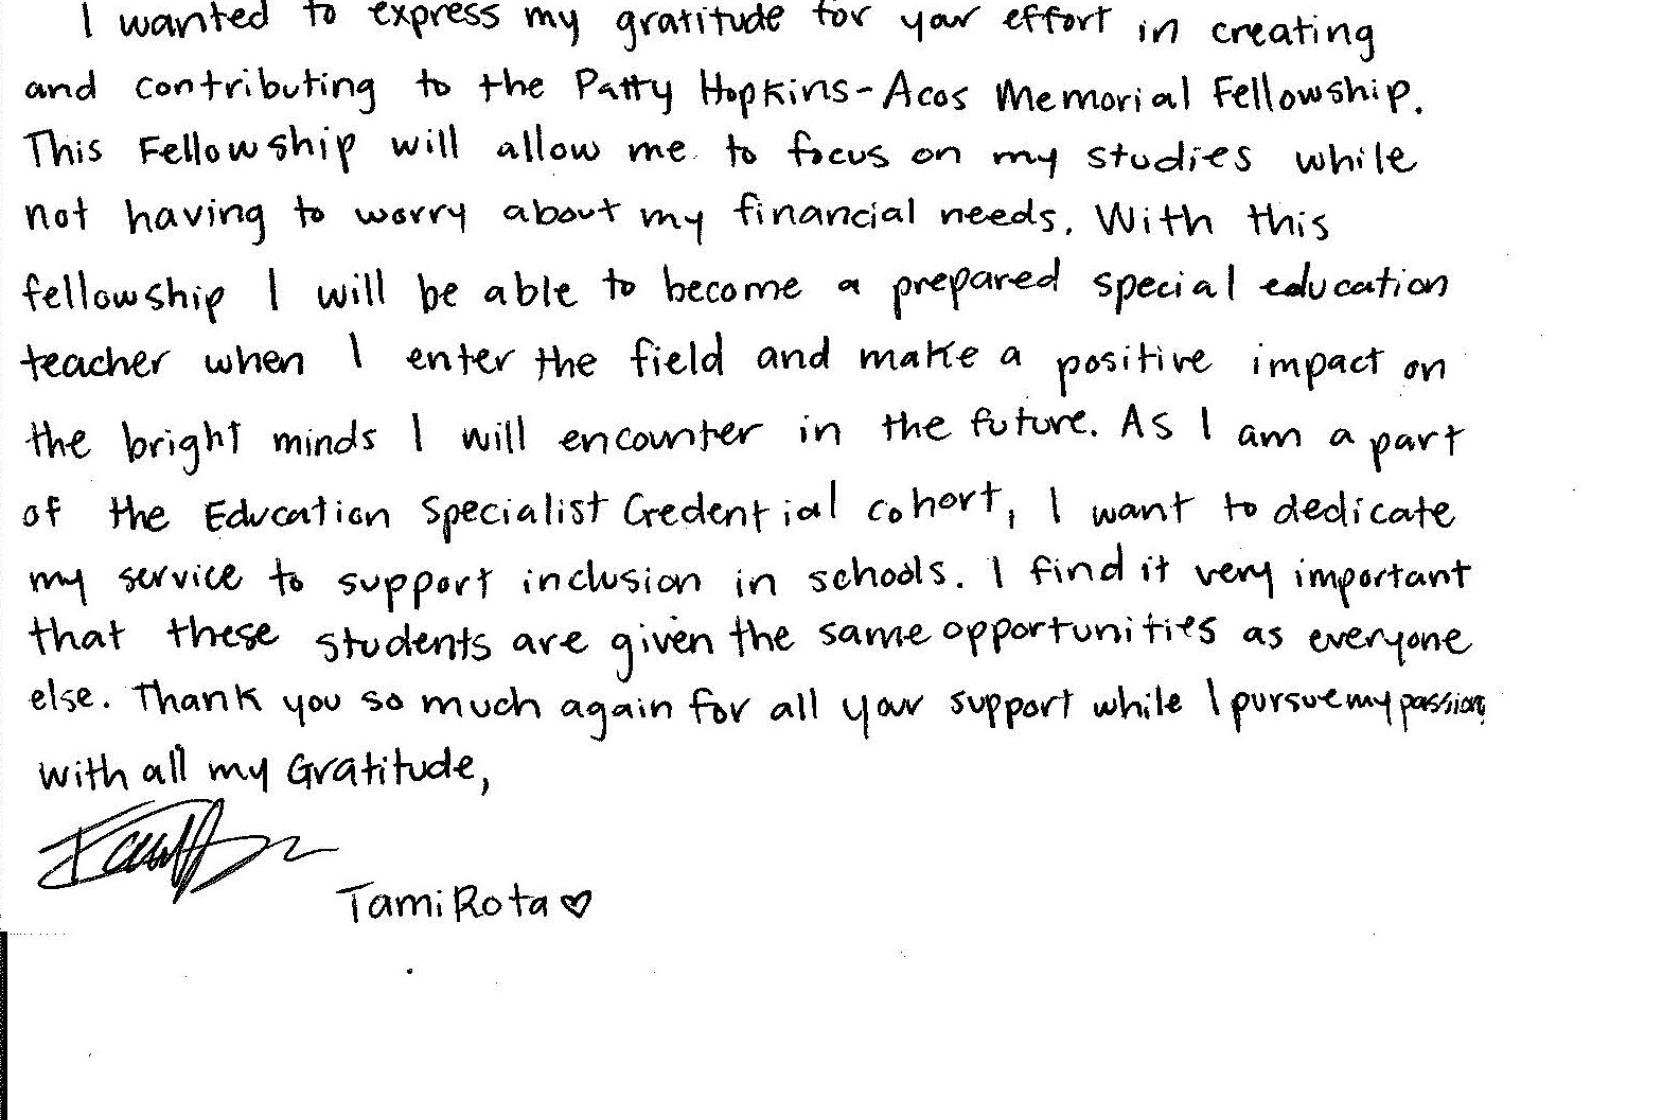 I wanted to express my gratitude for your effort in creating
and contributing to the Patty Hopkins-Acos Memorial Fellowship.
This Fellowship will allow me to focus on my studies while
not having to worry about my financial needs. With this
fellowship I will be able to become a prepared special education
teacher when I enter the field and make a positive impact on
the bright minds I will encounter in the future. As I am a part
of the Education Specialist Credential cohort, I want to dedicate
my service to support inclusion in schools. I find it very important
that these students are given the same opportunities as everyone
else. Thank you so much again for all your support while I pursue my passion,
with all my Gratitude,
Tami Rota ♡